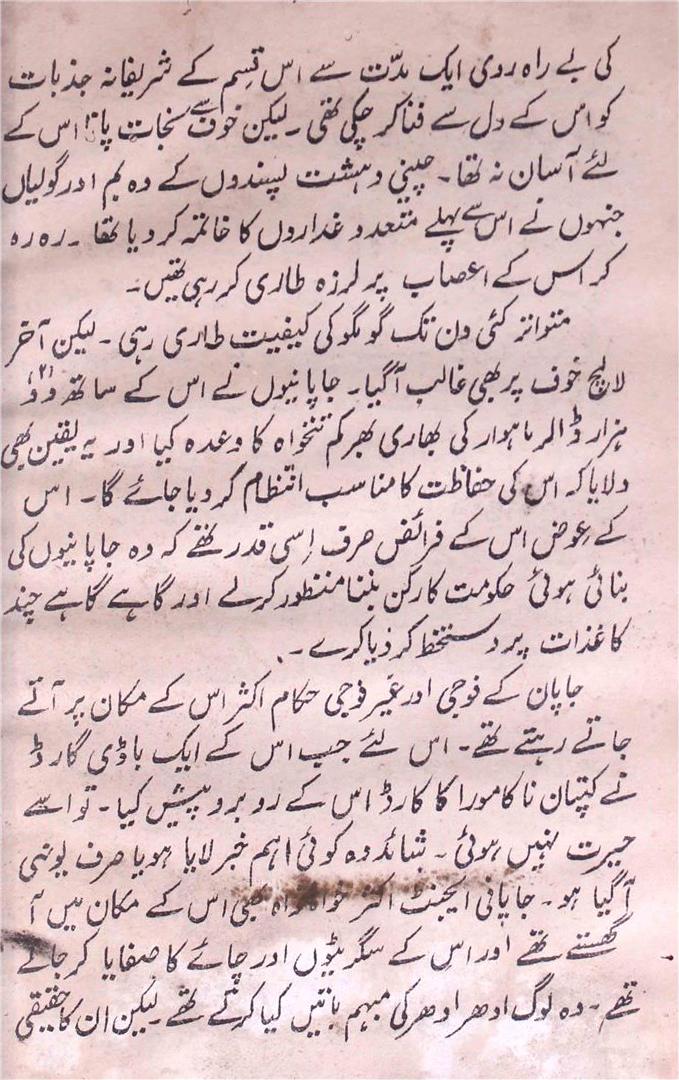 کی بے راہ روی ایک مدّت سے اس قسِم کے شریفانہ جذبات
کو اس کے دل سے فنا کر چکی تھی ۔ لیکن خوف سے نجات پانا اس کے
لئے آسان نہ تھا ۔ چینی دہشت پسندوں کے وہ بم اور گولیاں
جنہوں نے اس سے پہلے متعدد غداروں کا خاتمہ کر دیا تھا ۔ رہ رہ
کر اس کے اعصاب پر لرزہ طاری کر رہی تھیں ۔
متواتر کئی دن تک گومگو کی کیفیت طاری رہی ۔ لیکن آخر
لالچ خوف پر بھی غالب آ گیا ۔ جاپانیوں نے اس کے ساتھ دو (۲)
ہزار ڈالر ماہوار کی بھاری بھرکم تنخواہ کا وعدہ کیا اور یہ یقین بھی
دلایا کہ اس کی حفاظت کا مناسب انتظام کر دیا جائے گا ۔ اس
کے عِوض اس کے فرائض صرف اِسی قدر تھے کہ وہ جاپانیوں کی
بنائی ہوئی حکومت کا رکن بننا منظور کرلے اور گاہے گاہے چند
کاغذات پر دستخط کر دیا کرے ۔
جاپان کے فوجی اور غیر فوجی حکام اکثر اس کے مکان پر آتے
جاتے رہتے تھے ۔ اس لئے جب اس کے ایک باڈی گارڈ
نے کپتان ناکامورا کا کارڈ اس کے روبرو پیش کیا ۔ تو اسے
حیرت نہیں ہوئی ۔ شائد وہ کوئی اہم خبر لایا ہو یا صرف یونہی
آ گیا ہو ۔ جاپانی ایجنٹ اکثر خواہ مخواہ بھی اس کے مکان میں آ
گھستے تھے اور اس کے سگریٹوں اور چائے کا صفایا کر جاتے
تھے ۔ وہ لوگ ادھر ادھر کی مبہم باتیں کیا کرتے تھے ۔ لیکن ان کا حقیقی